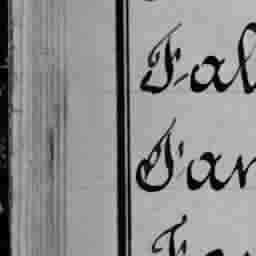 Fal
Fan